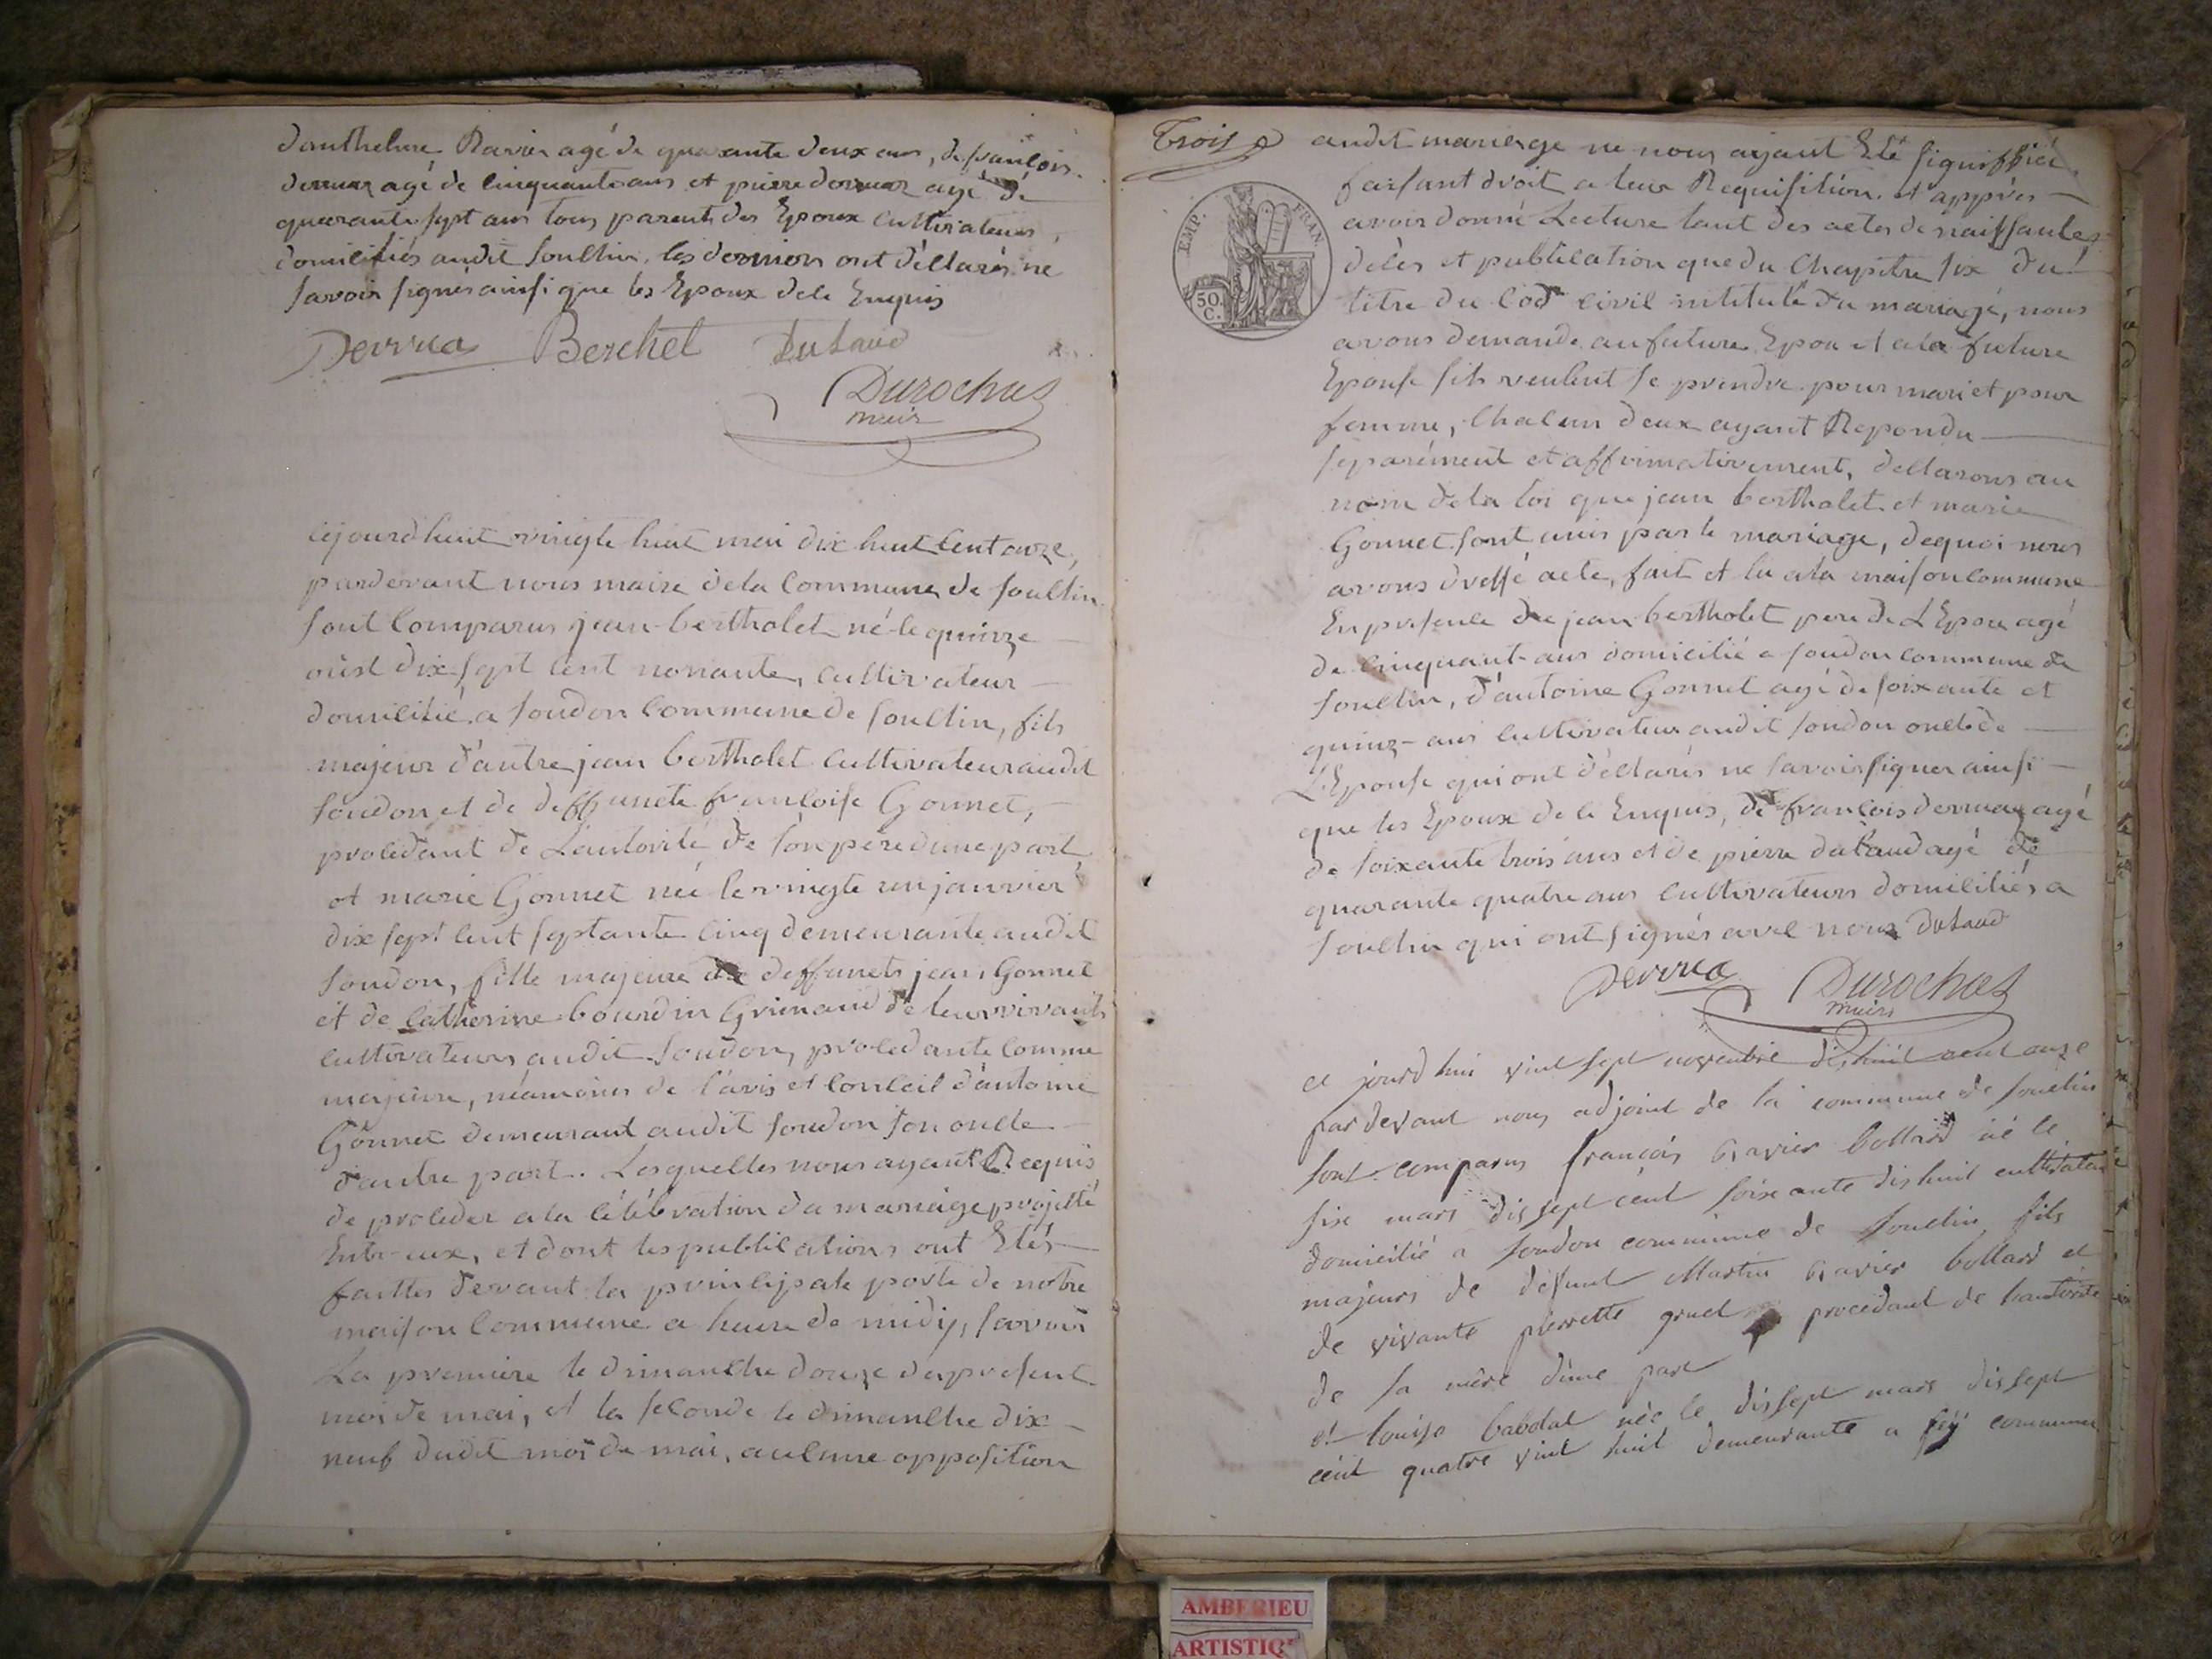 d'anthelme Ravier agé de quarante deux ans, de francois
dervuaz agé de Cinquante ans et pierre dervuaz agé de
quarante sept ans tous parents des Epoux Cultivateurs
domiciliés audit Souclin, les derniers ont déclarés ne
savoir signés ainsi que les Epoux de ce Enquis
Dervua Berchet Dutaud
Durochat
maire
Cejourdhuit vingte huit mai dix huit Cent onze,
pardevant nous maire de la Commune de Souclin
sont Comparus jean bertholet né le quinze
oust dix sept Cent nonante, Cultivateur
domicilié a soudon Commune de souclin, fils
majeur d'autre jean bertholet Cultivateur audit
soudon et de deffuncte francoise Gonnet,
procedant de L'autorité de son pere dune part
et marie Gonnet née le vingte un janvier
dix sept Cent septante Cinq demeurante audit
soudon, fille majeure de deffuncts jean Gonnet
et de Catherine bourdin Grimaud de leur vivants
Cultivateurs audit soudon, procedante Comme
majeure, néamoins de l'avis et Conceil d'antoine
Gonnet demeurant audit soudon son oncle
d'autre part. Lesquelles nous ayant Requis
de proceder a la Célébration du mariage projetté
Entr-eux, et dont les publications ont Etés
faittes devant la principale porte de notre
maison Commune a heure de midi, savoir
La premiere le dimanche douze du present
moi de mai, et la seconde le dimanche dix
neuf dudit moi de mai, aucunne opposition
Trois
EMP. FRAN
50
C.
audit mariage ne nous ayant Eté signiffiée
faisant droit a leur Requisition. et apprès
avoir donné Lecture tant des actes de naissances
décès et publication que du Chapitre six du
titre du Code Civil intitulé du mariage, nous
avons demandé au future Epou et a la future
Epouse sils veulent se prendre pour mari et pour
femme, Chacun deux ayant Repondu
separément et affirmativement, declarons au
nom de la loi que jean bertholet et marie
Gonnet sont unis par le mariage, de quoi nous
avons dressé acte, fait et lu a la maison commune
En presence de jean bertholet pere de L'Epou agé
de Cinquant ans domicilié a soudon commune de
souclin, d'antoine Gonnet agé de soixante et
quinz ans Cultivateur audit soudon oncle de
L'Epouse qui ont déclarés ne savoir signer ainsi
que les Epoux de ce Enquis, de francois dervuaz agé
de soixante trois ans et de pierre dutaud agé de
quarante quatre ans Cultivateurs domiciliés a
souclin qui ont signés avec nous Dutaud
Dervua Durochat
maire
ce jourdhui vint sept novembre dishuit cent onze
par devant nous adjoint de la commune de souclin
sont comparus françois Ravier bollard né le
six mars dis sept cent soixante dishuit cultivateur
domicilié a soudon commune de souclin fils
majeurs de defunt Martin Ravier bollard et
de vivante pierrette gruel procedant de l'autorité
de sa mère d'une part
et louise née le dissept mars dissept
cent quatre vint huit demeurante a commune
AMBERIEU
ARTISTIQ